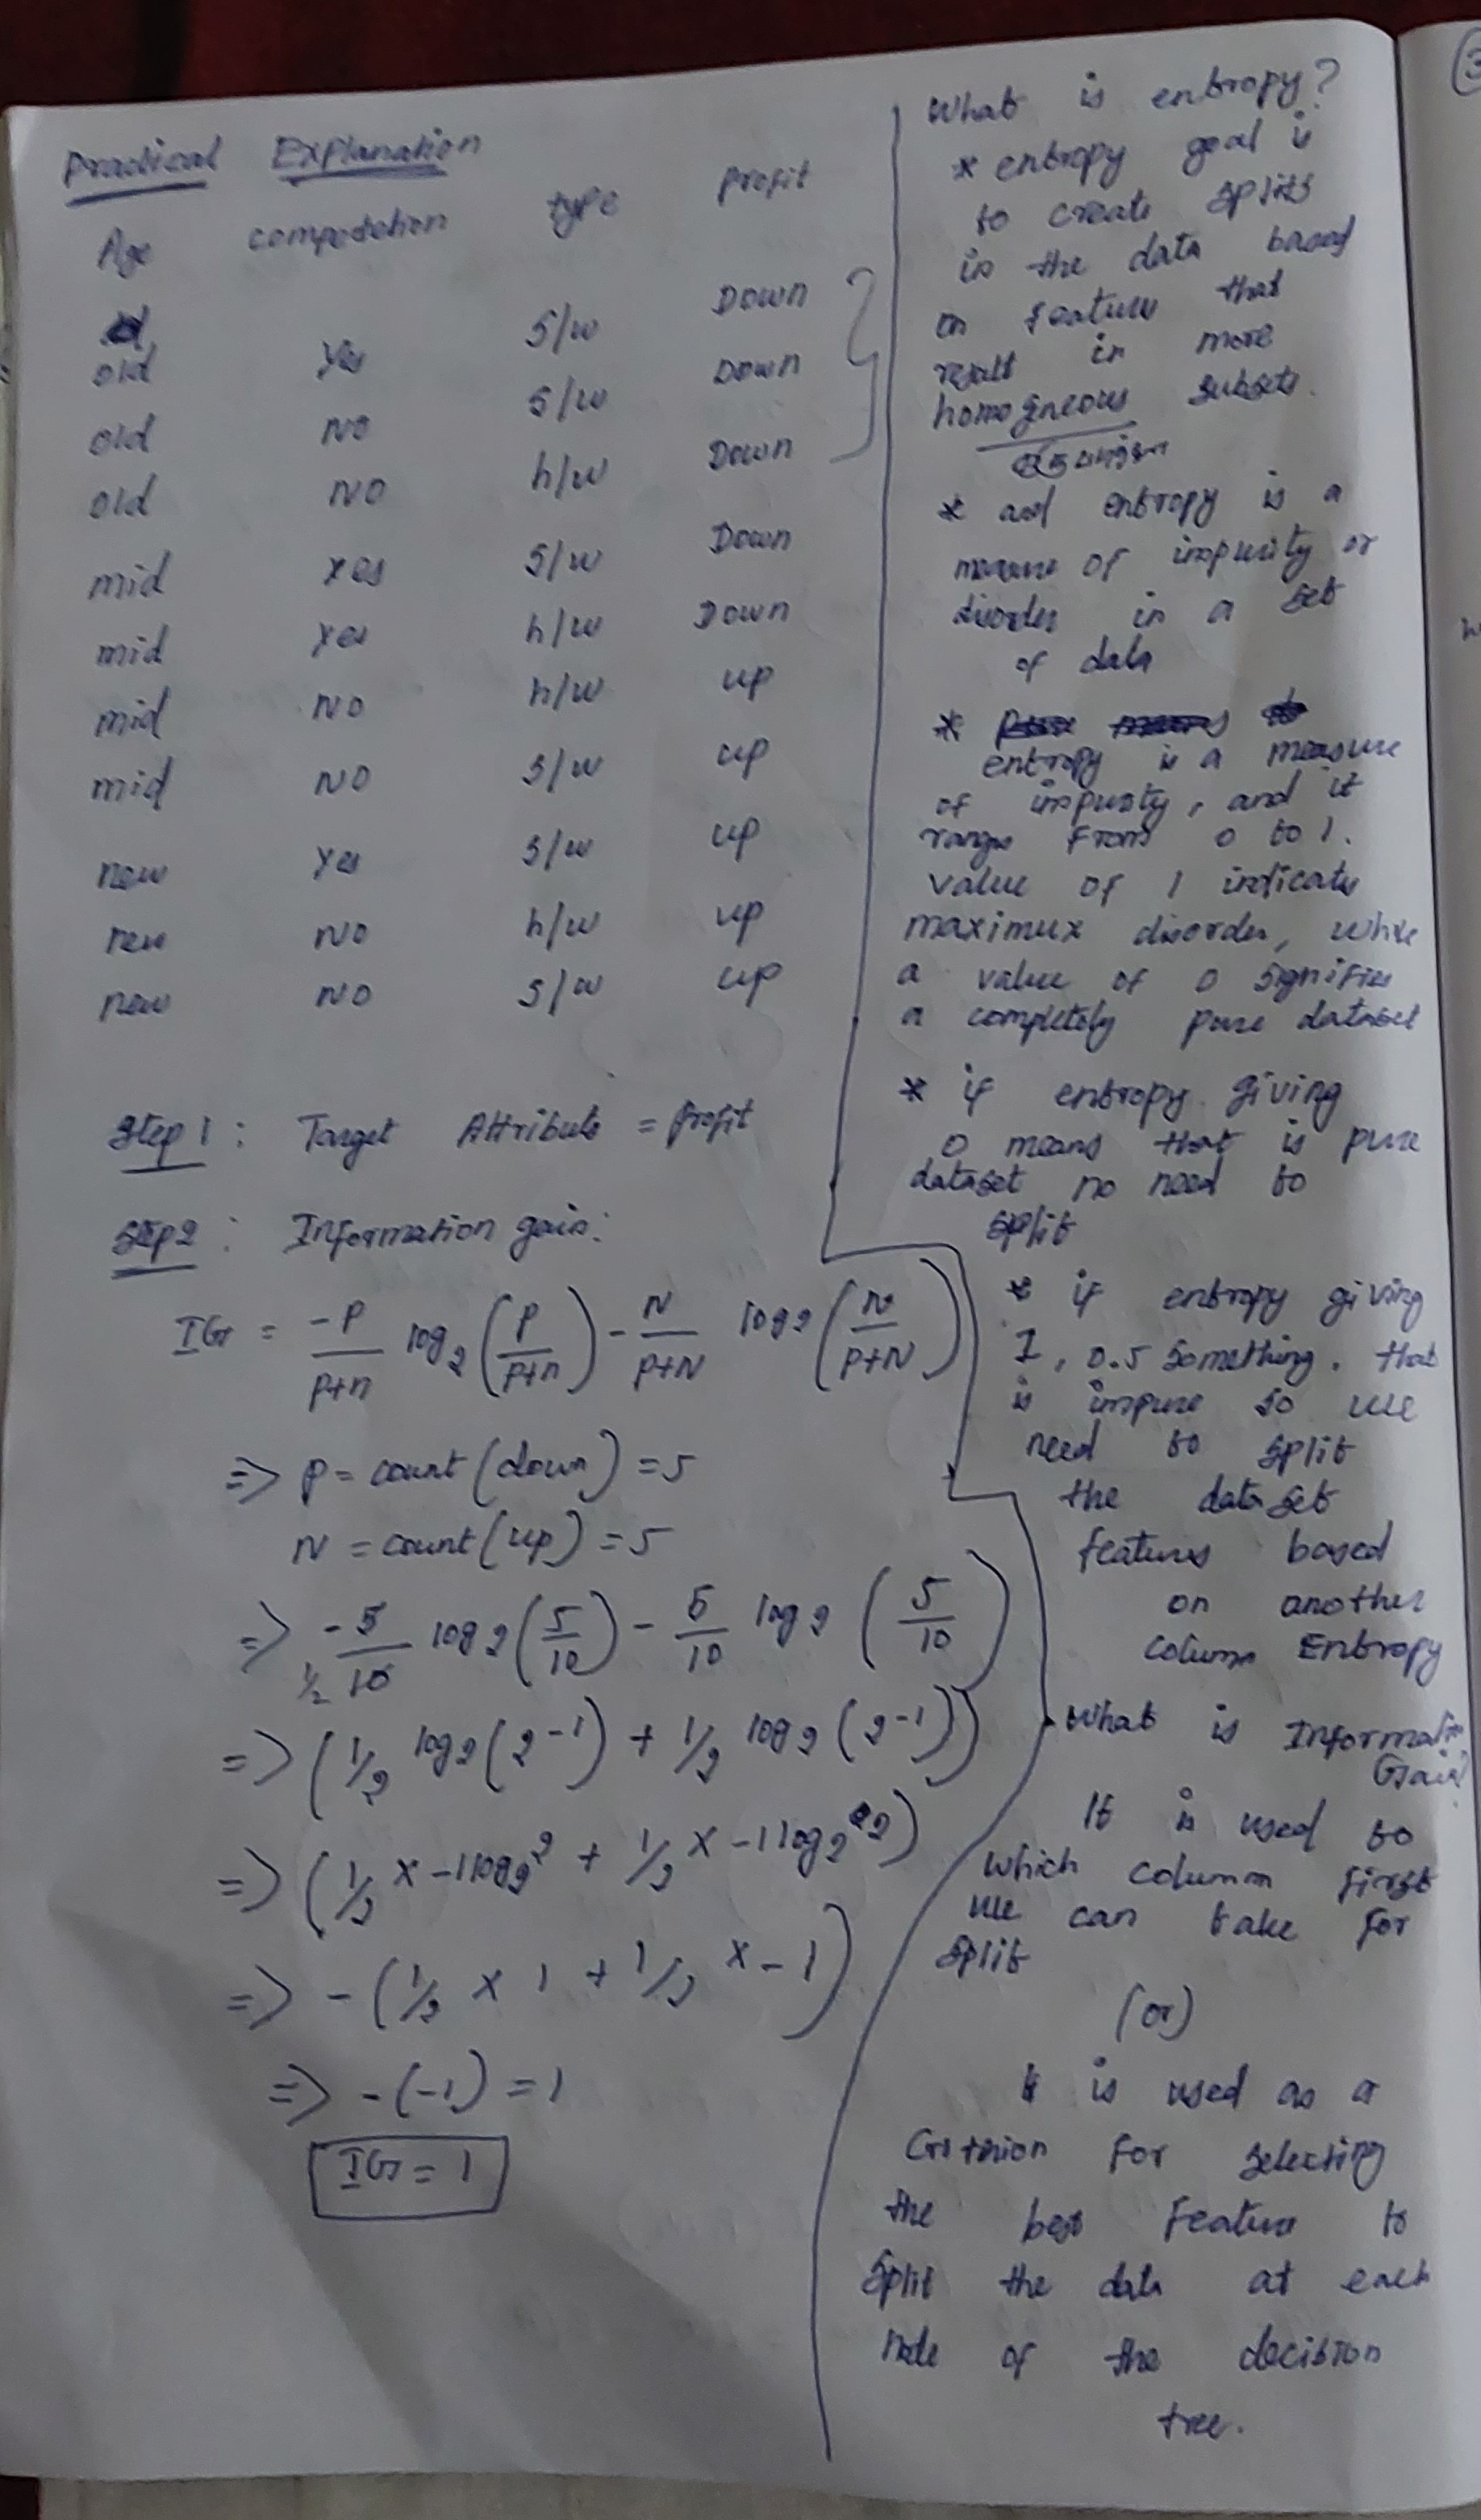 Practical Explanation
Age competetion type profit
old yes s/w Down
old NO s/w Down
old NO h/w Down
mid yes s/w Down
mid yes h/w Down
mid NO h/w up
mid NO s/w up
new yes s/w up
new NO h/w up
new NO s/w up
Step 1 : Target Attribute = profit
Step 2 : Information gain:
IG = -P/P+n log2 (P/P+n) - N/P+N log2 (N/P+N)
=> P = count (down) = 5
N = count (up) = 5
=> -5/10 log2 (5/10) - 5/10 log2 (5/10)
1/2
=> (1/2 log2 (2^-1) + 1/2 log2 (2^-1))
=> (1/2 x -1 log2^2 + 1/2 x -1 log2^2)
=> - (1/2 x 1 + 1/2 x -1)
=> - (-1) = 1
IG = 1
What is entropy?
* entropy goal is
to create splits
in the data based
on feature that
result in more
homogneous subsets.
* and entropy is a
measure of impurity or
disorder in a set
of data
*
entropy is a measure
of impurity, and it
ranges from 0 to 1.
value of 1 indicate
maximux disorder, while
a value of 0 signifies
a completely pure dataset
* if entropy giving
0 means that is pure
dataset no need to
split
* if entropy giving
1, 0.5 something. that
is impure so we
need to split
the data set
features based
on another
column Entropy
What is Informatin
Gain?
It is used to
which column first
we can take for
split
(or)
It is used as a
Criterion for selecting
the best feature to
split the data at each
node of the decision
tree.